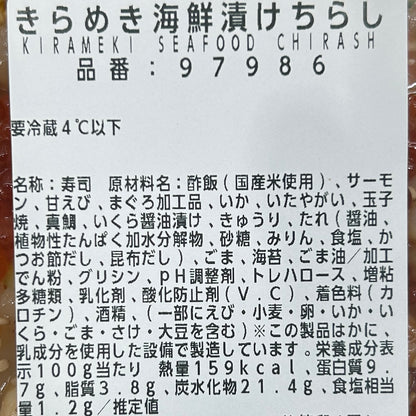 きらめき海鮮漬けちらし
KIRAMEKI SEAFOOD CHIRASH
品番:97986
要冷蔵4℃以下
名称:寿司 原材料名:酢飯(国産米使用)、サーモ
ン、甘えび、まぐろ加工品、いか、いたやがい、玉子
焼、真鯛、いくら醤油漬け、きゅうり、たれ(醤油、
植物性たんぱく加水分解物、砂糖、みりん、食塩、か
つお節だし、昆布だし)、ごま、海苔、ごま油/加工
でん粉、グリシン、pH調整剤、トレハロース、増粘
多糖類、乳化剤、酸化防止剤(V.C)、着色料(カ
ロチン)、酒精、(一部にえび・小麦・卵・いか・い
くら・ごま・さけ・大豆を含む)※この製品はかに、
乳成分を使用した設備で製造しています。栄養成分表
示100g当たり 熱量159kcal、蛋白質9.
7g、脂質3.8g、炭水化物21.4g、食塩相当
量1.2g/推定値